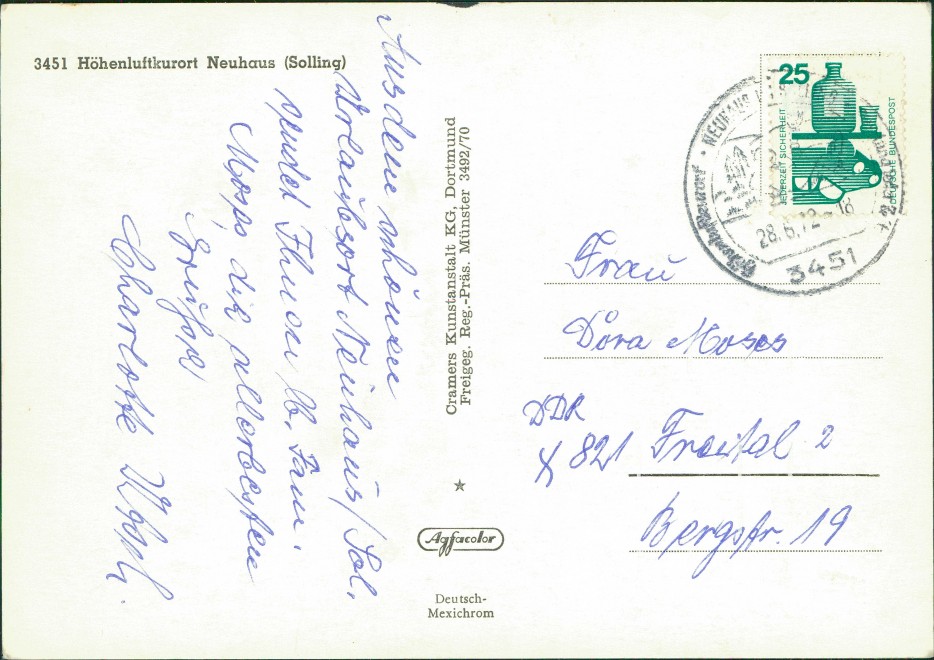 3451 Höhenluftkurort Neuhaus (Solling)
Aus dem schönen
Urlaubsort Neuhaus/Sol.
sendet Ihnen lb. Fam.
Moses die allerbesten
Grüße
Charlotte
Cramers Kunstanstalt KG, Dortmund
Freigeg. Reg.-Präs. Münster 3492/70
Agfacolor
Deutsch-
Mexichrom
25
JEDERZEIT SICHERHEIT
DEUTSCHE BUNDESPOST
NEUHAUS
28.6.72-18
3451
Frau
Dora Moses
DDR
X 821 Freital 2
Bergstr. 19